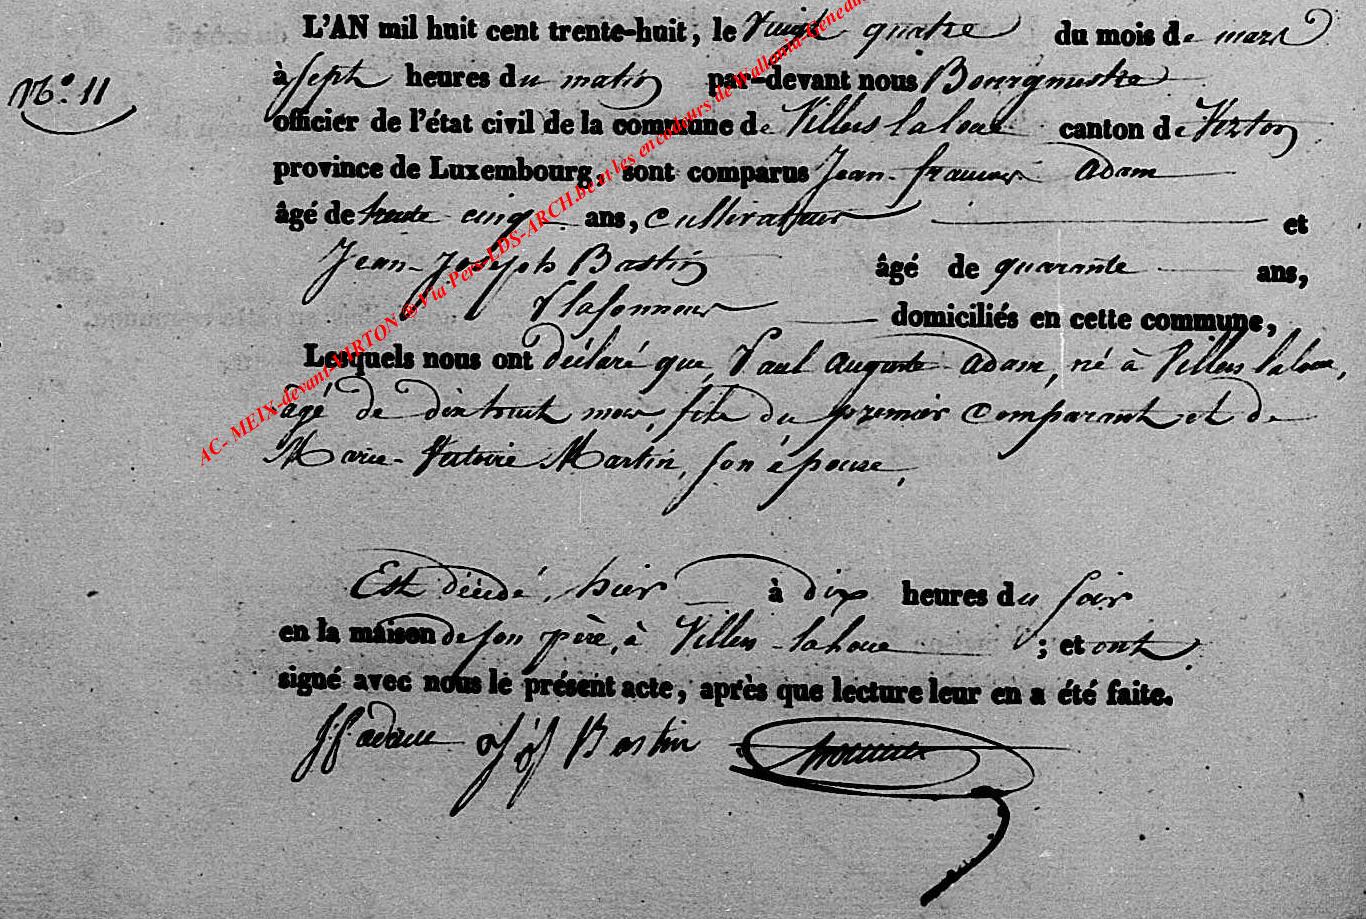 L'AN mil huit cent trente-huit, le Vingt quatre du mois de mars
à Sept heures du matin par-devant nous Bourgmestre
N.o 11
officier de l'état civil de la commune de Villers la loue canton de Virton
province de Luxembourg, sont comparus Jean-francois Adam
âgé de trente cinq ans, cultivateur et
Jean-Joseph Bastin âgé de quarante ans,
Plafonneur domiciliés en cette commune,
Lesquels nous ont déclaré que, Paul Auguste Adam, né à Villers la loue,
agé de dix huit mois, fils du premier comparant et de
Marie-Victoire Martin, son épouse,
Est décédé, hier à dix heures du soir
en la maison de son père, à Villers-laloue ; et ont
signé avec nous le présent acte, après que lecture leur en a été faite.
J f adam J J Bastin
AC- MEIX-devant-VIRTON @ Via Pers-LDS-ARCH.be et les encodeurs de Wallonia-Genealo